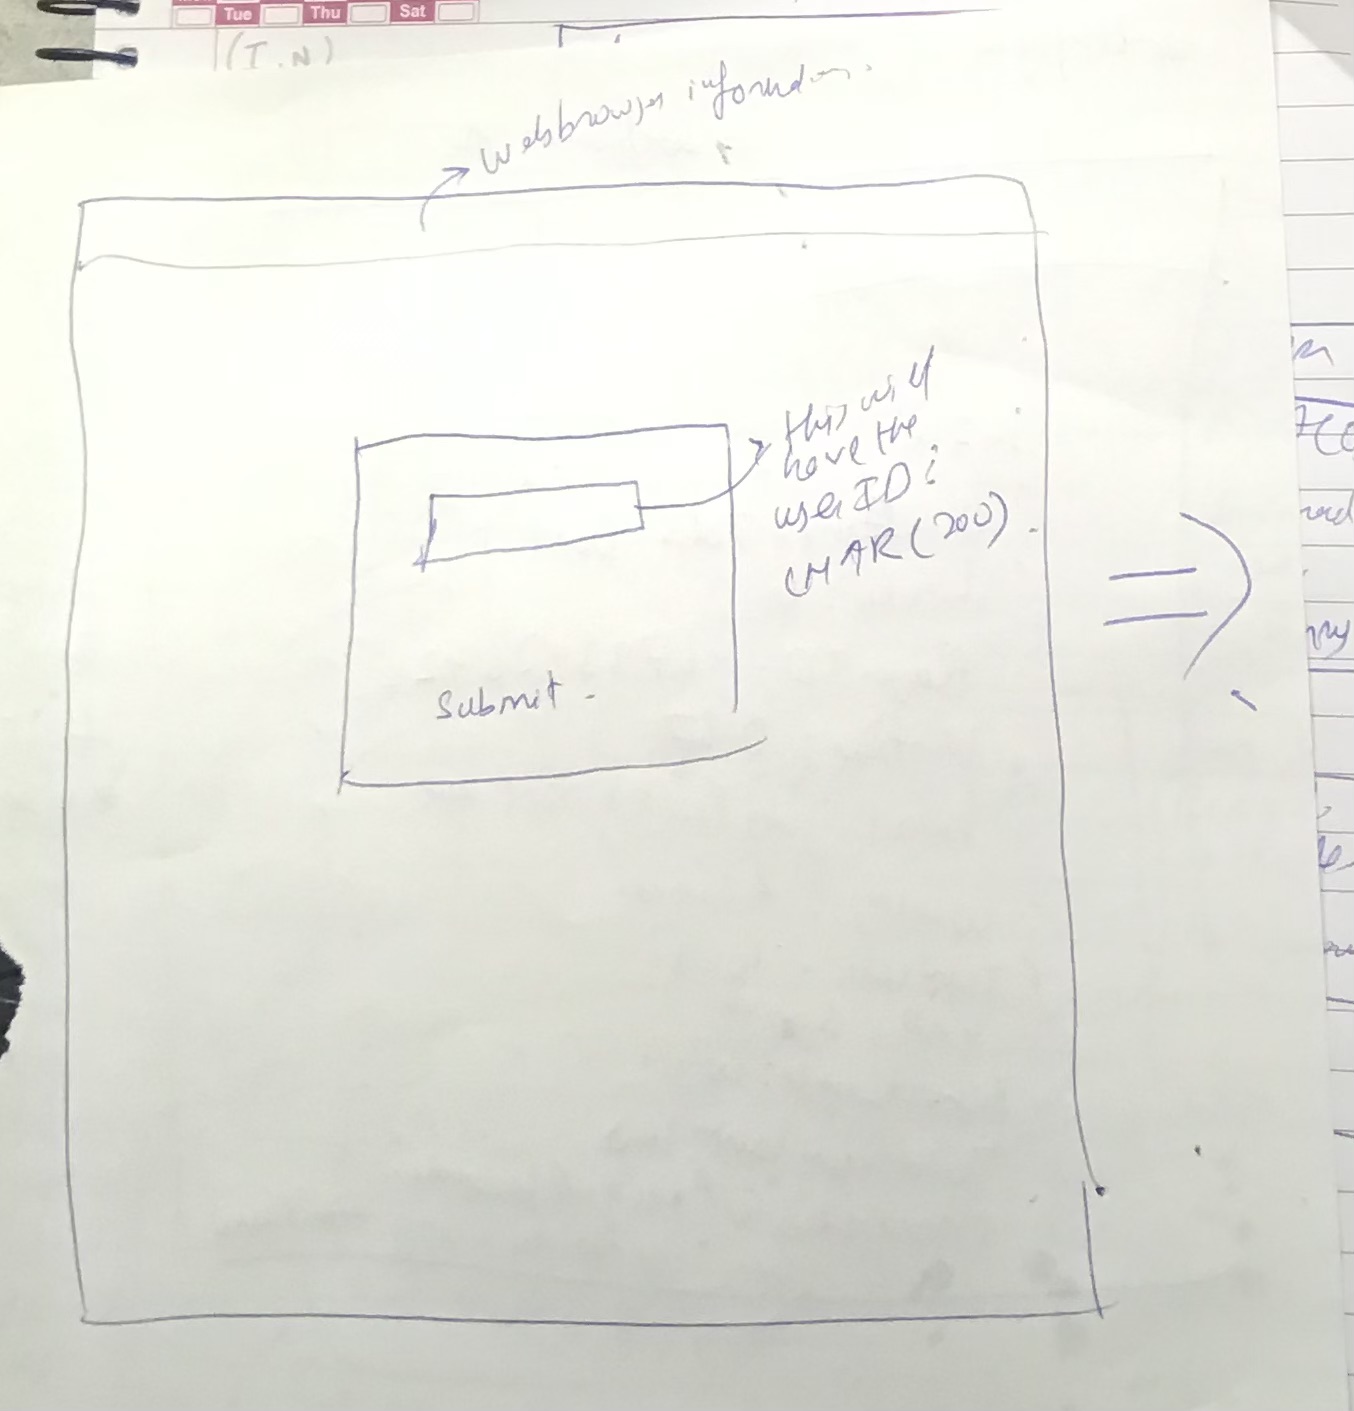 Tue Thu Sat
(I.N)
Webbrowser information.
this will
have the
userID:
CHAR(200).
Submit -